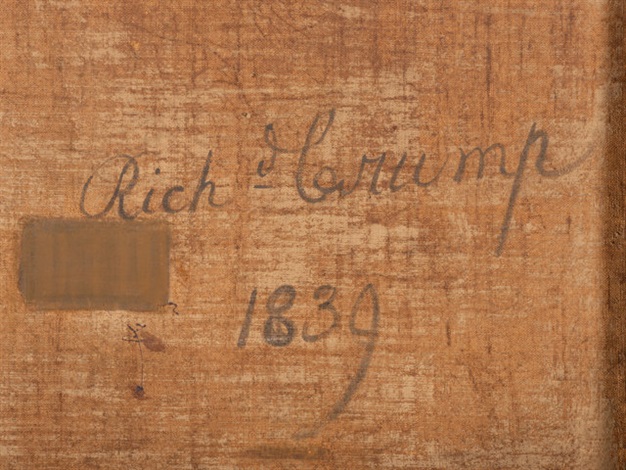 Richd Crump
1839